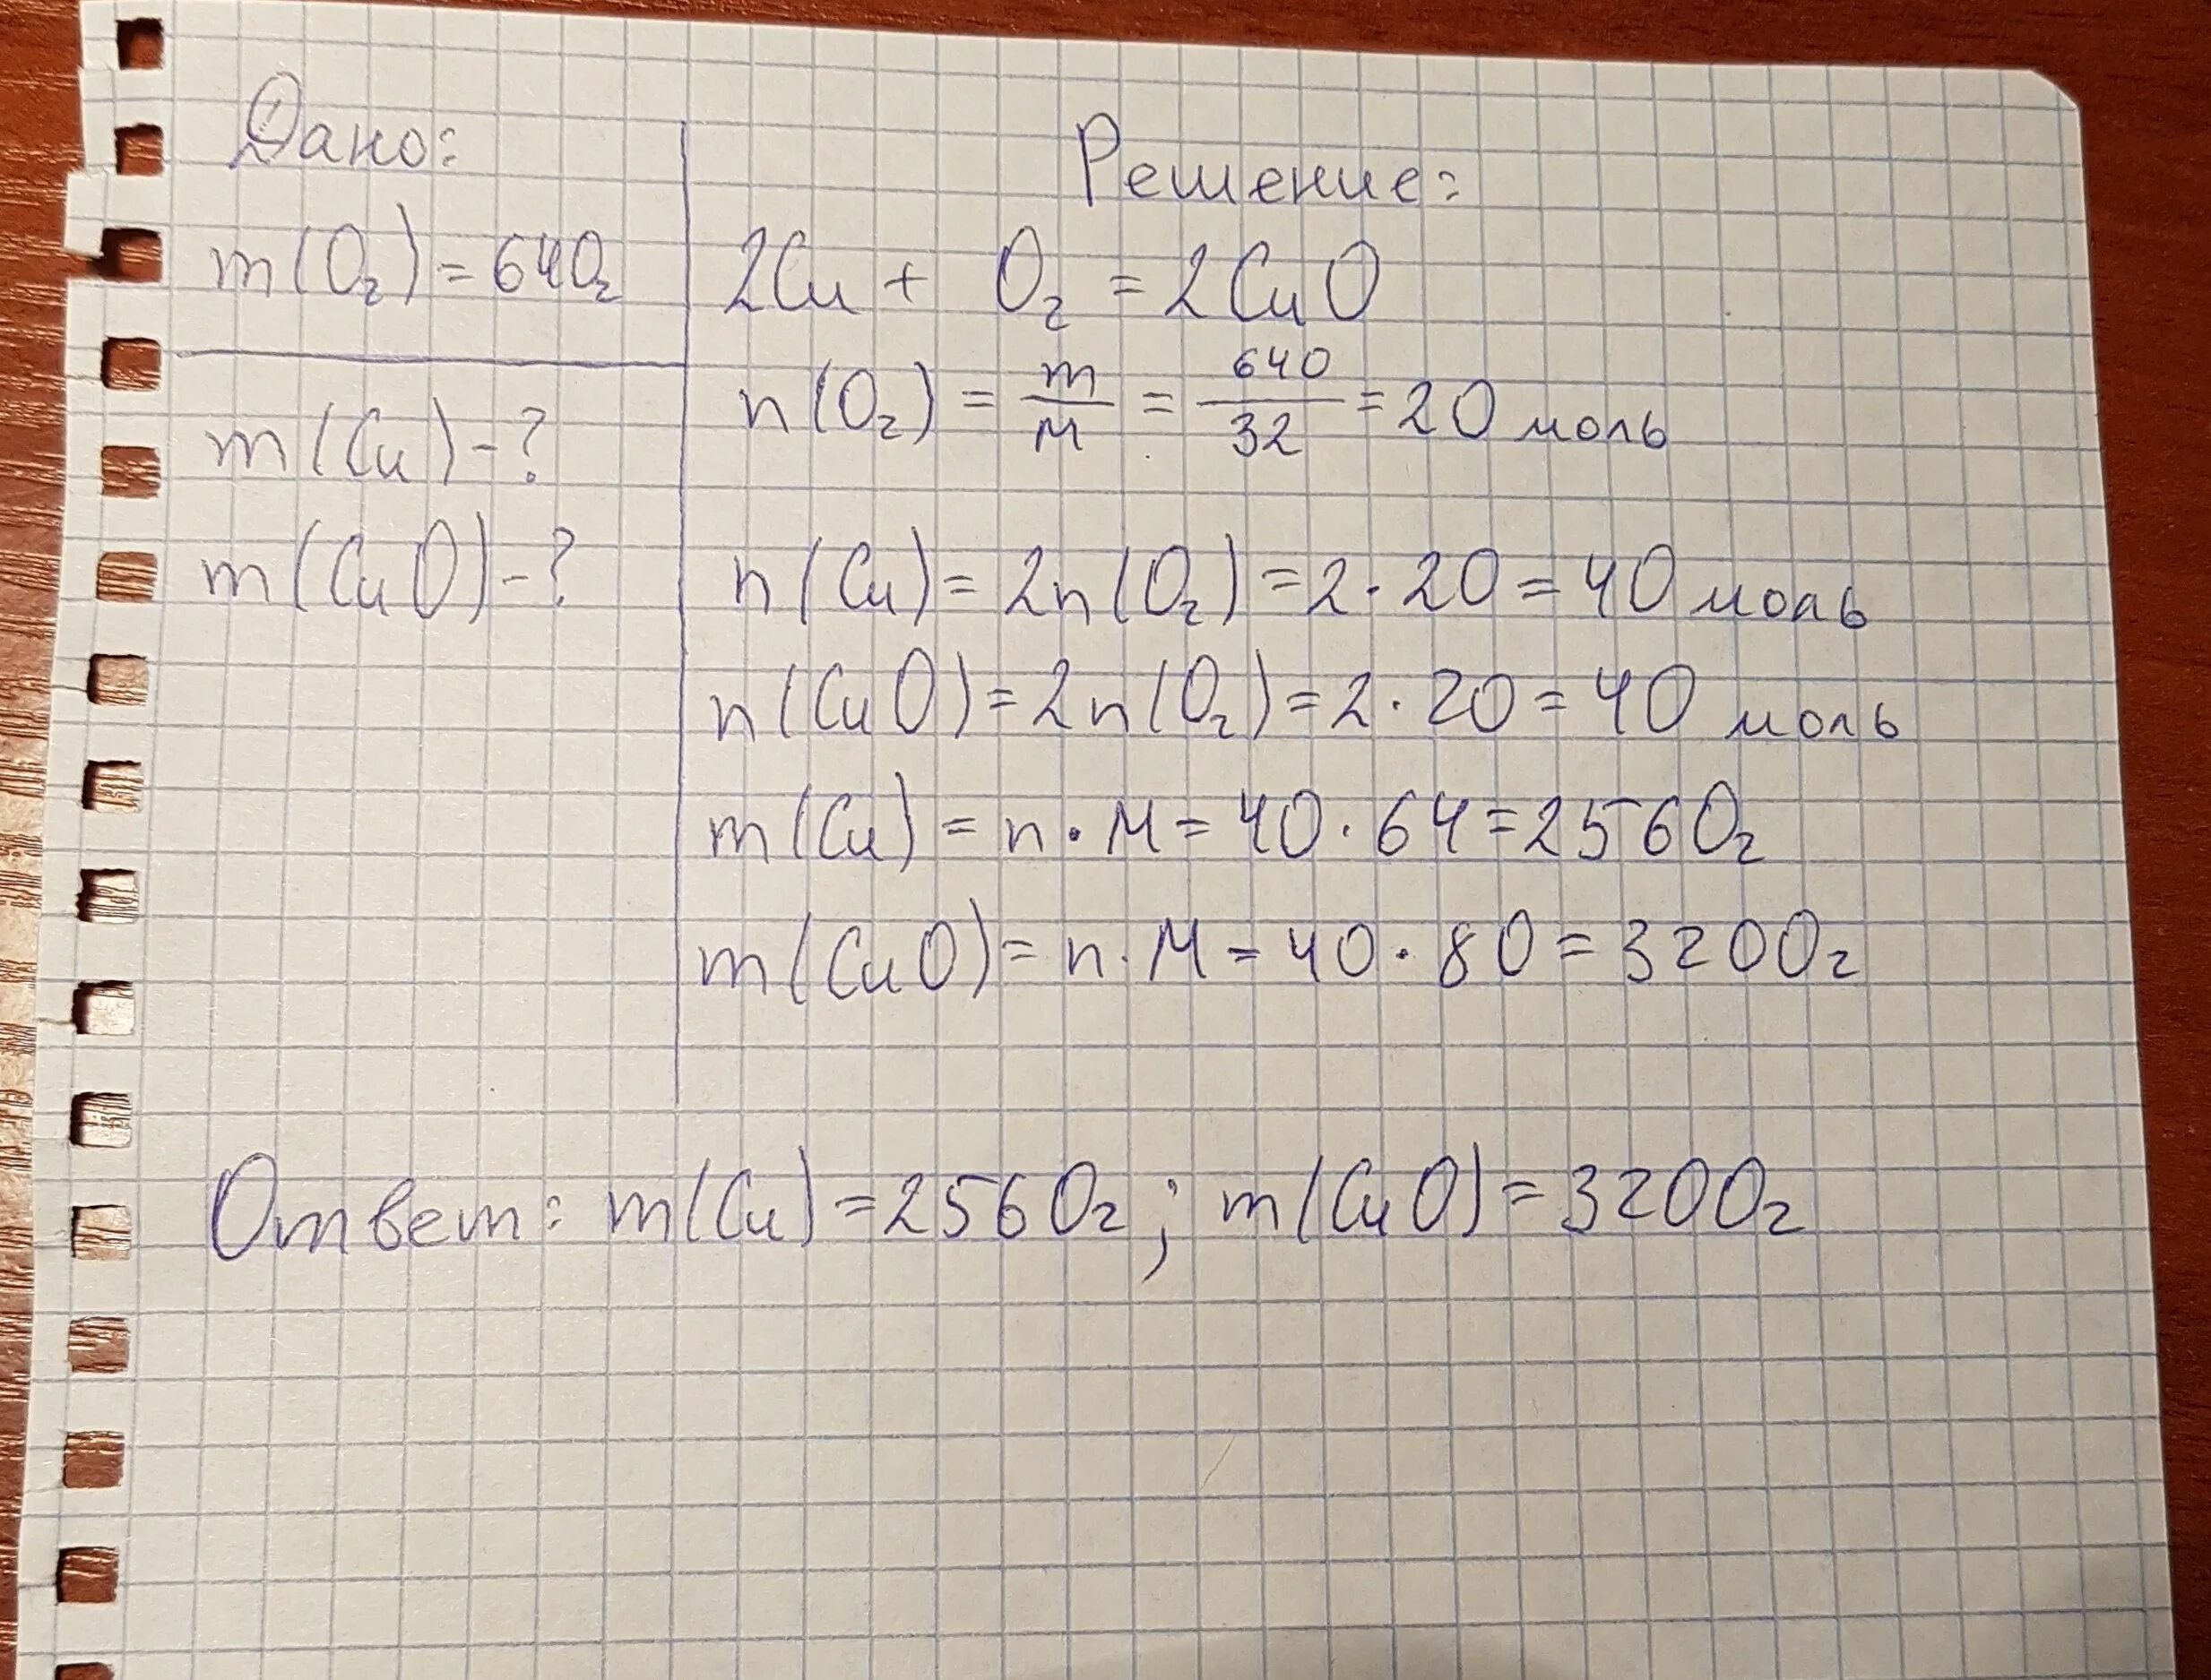 Дано:
m(O₂) = 640г
m(Cu) - ?
m(CuO) - ?
Решение:
2Cu + O₂ = 2CuO
n(O₂) = m/M = 640/32 = 20 моль
n(Cu) = 2n(O₂) = 2 · 20 = 40 моль
n(CuO) = 2n(O₂) = 2 · 20 = 40 моль
m(Cu) = n · M = 40 · 64 = 2560г
m(CuO) = n · M = 40 · 80 = 3200г
Ответ: m(Cu) = 2560г; m(CuO) = 3200г